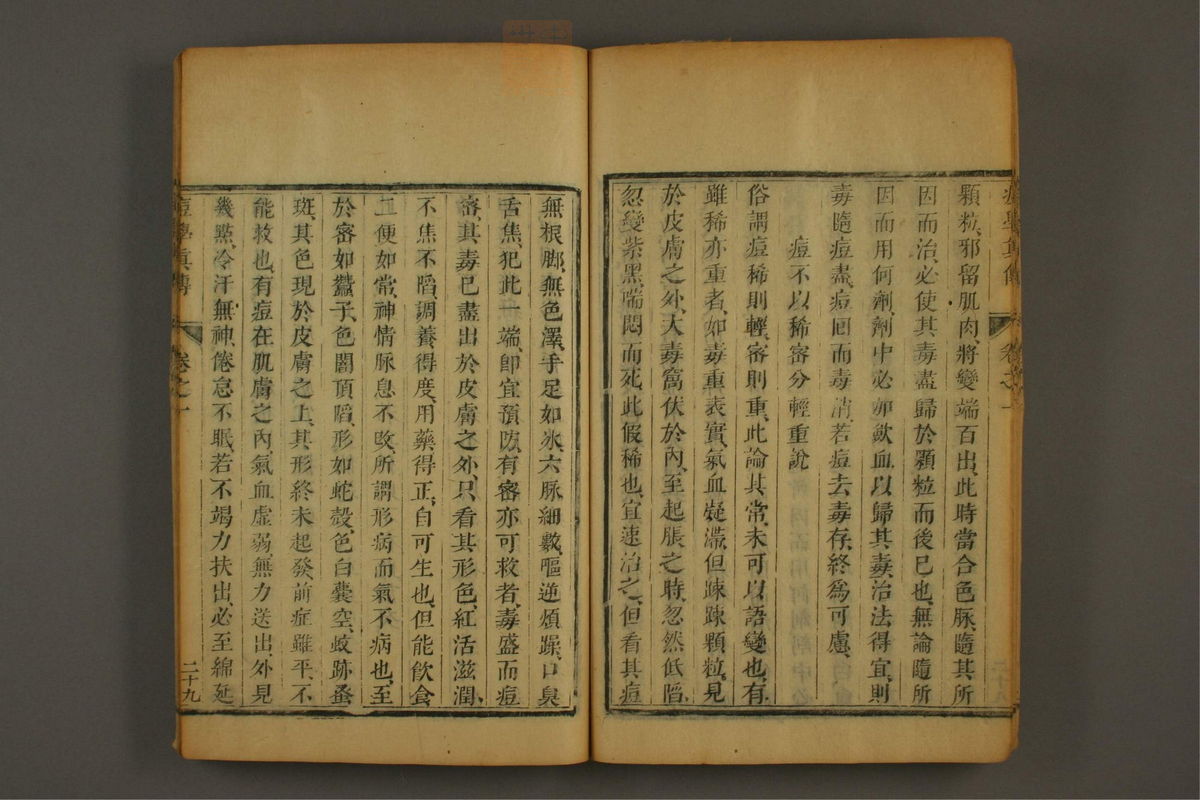 痘學真傳 卷之一
顆粒、邪留肌肉將變端百出、此時當合色脉、隨其所
因而治、必使其毒盡歸於顆粒而後已也、無論隨所
因而用何劑、劑中必加斂血以歸其毒、治法得宜、則
毒隨痘盡、痘回而毒消、若痘去毒存、終爲可慮、
痘不以稀密分輕重說
俗謂痘稀則輕、密則重、此論其常、未可以語變也、有
雖稀亦重者、如毒重表實、氣血凝滯、但踈踈顆粒、見
於皮膚之外、大毒窩伏於內、至起脹之時、忽然低陷、
忽變紫黑、喘悶而死、此假稀也、宜速治之、但看其痘
無根脚、無色澤、手足如氷、六脉細數、嘔逆煩躁、口臭
舌焦、犯此一端、卽宜預防、有密亦可救者、毒盛而痘
密、其毒已盡出於皮膚之外、只看其形色、紅活滋潤、
不焦不陷、調養得度、用藥得正、自可生也、但能飲食
二便如常、神情脉息不改、所謂形病而氣不病也、至
於密如蠶子、色闇頂陷、形如蛇殼、色白囊空、蚊跡蚤
斑、其色現於皮膚之上、其形終未起發、前症雖平、不
能救也、有痘在肌膚之內、氣血虛弱、無力送出、外見
幾點、冷汗無神、倦怠不眠、若不竭力扶出、必至綿延
痘學真傳 卷之一 二十九